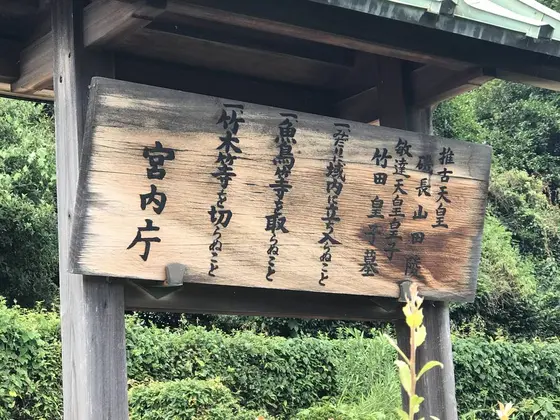 推古天皇
磯長山田陵
敏達天皇皇子
竹田皇子墓
一みだりに域内に立ち入らぬこと
一魚鳥等を取らぬこと
一竹木等を切らぬこと
宮内庁